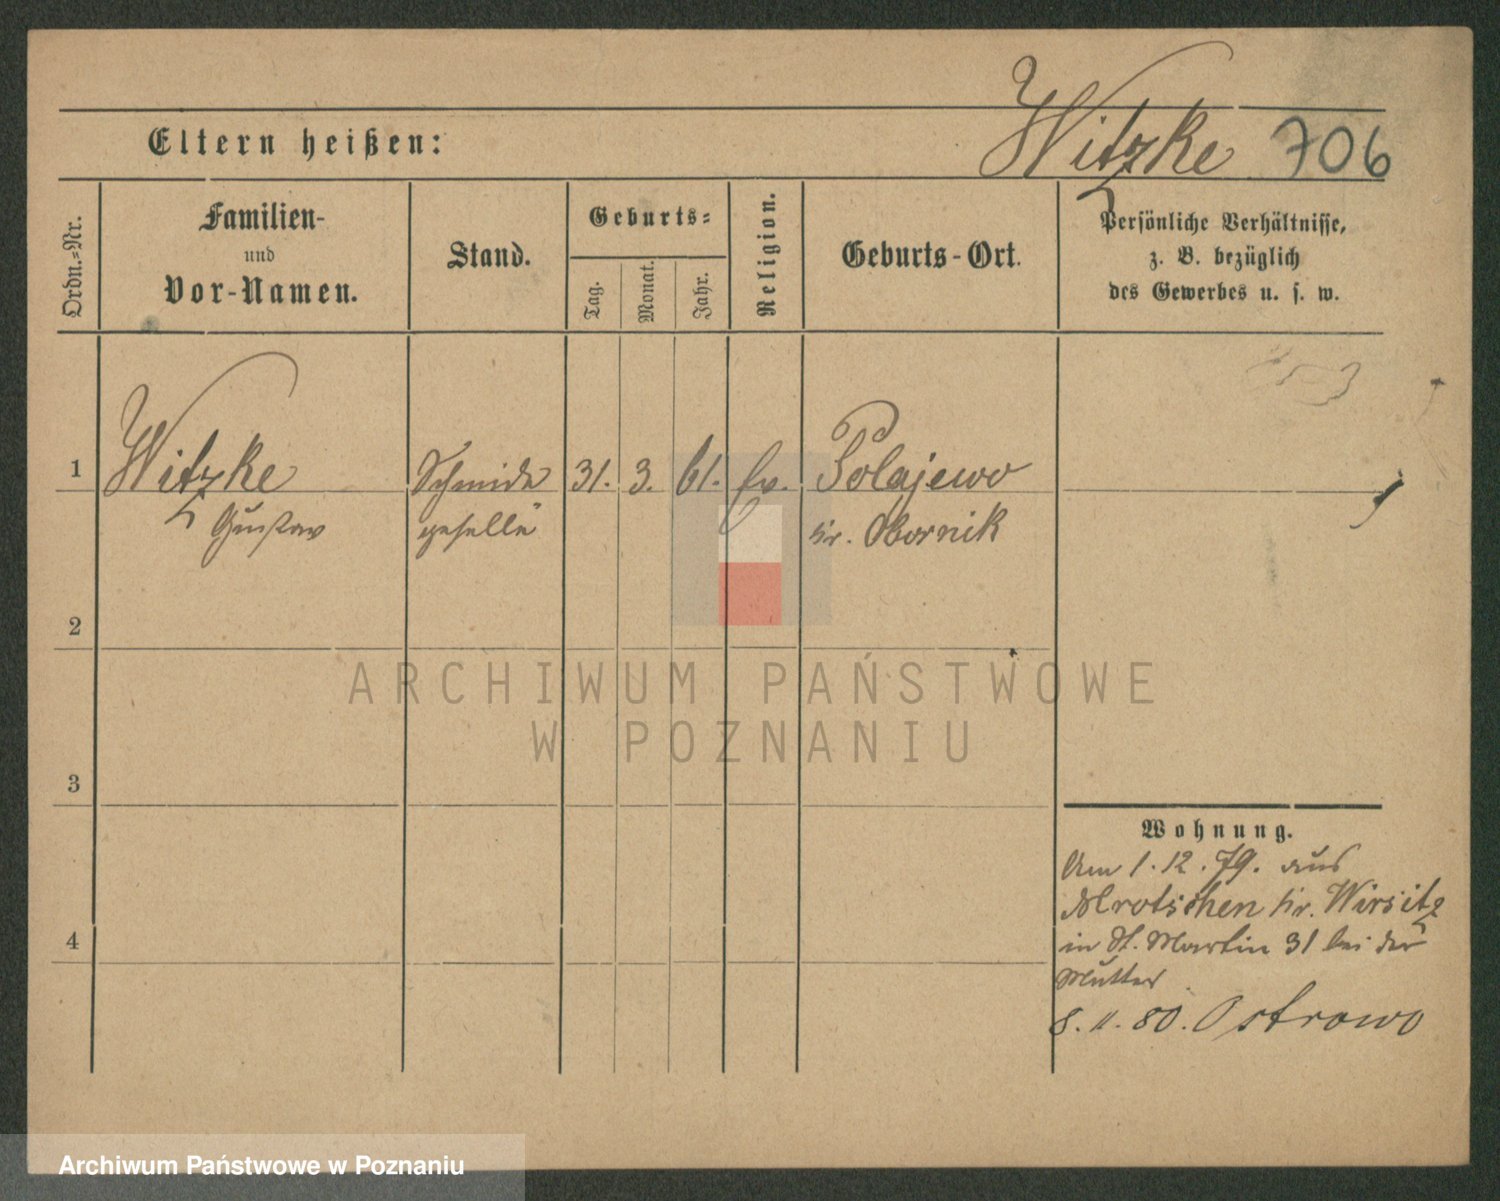 Witzke 706
Eltern heißen:
Ordn.-Nr.
Familien-
und
Vor-Namen.
Stand.
Geburts-
Tag.
Monat.
Jahr.
Religion.
Geburts-Ort.
Persönliche Verhältnisse,
z. B. bezüglich
des Gewerbes u. s. w.
1 Witzke Schmide 31. 3. 61. Ev. Polajewo
Gustav geselle Kr. Obornik
2
3
4
Wohnung.
Am 1. 12. 79. aus
Mrotschen Kr. Wirsitz
in St. Martin 31 bei der
Mutter
8. 11. 80. Ostrowo
ARCHIWUM PAŃSTWOWE
W POZNANIU
Archiwum Państwowe w Poznaniu